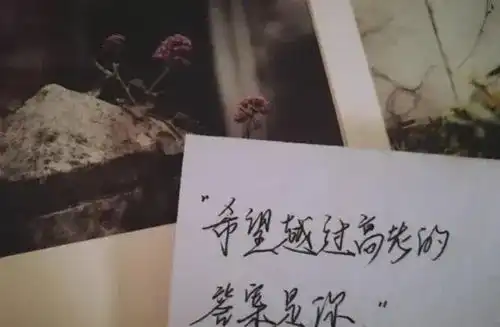 "希望越过高考的
答案是你"